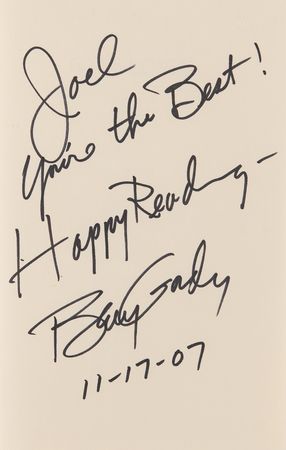 Joel
You're the Best!
Happy Reading -
Barry Grady
11-17-07